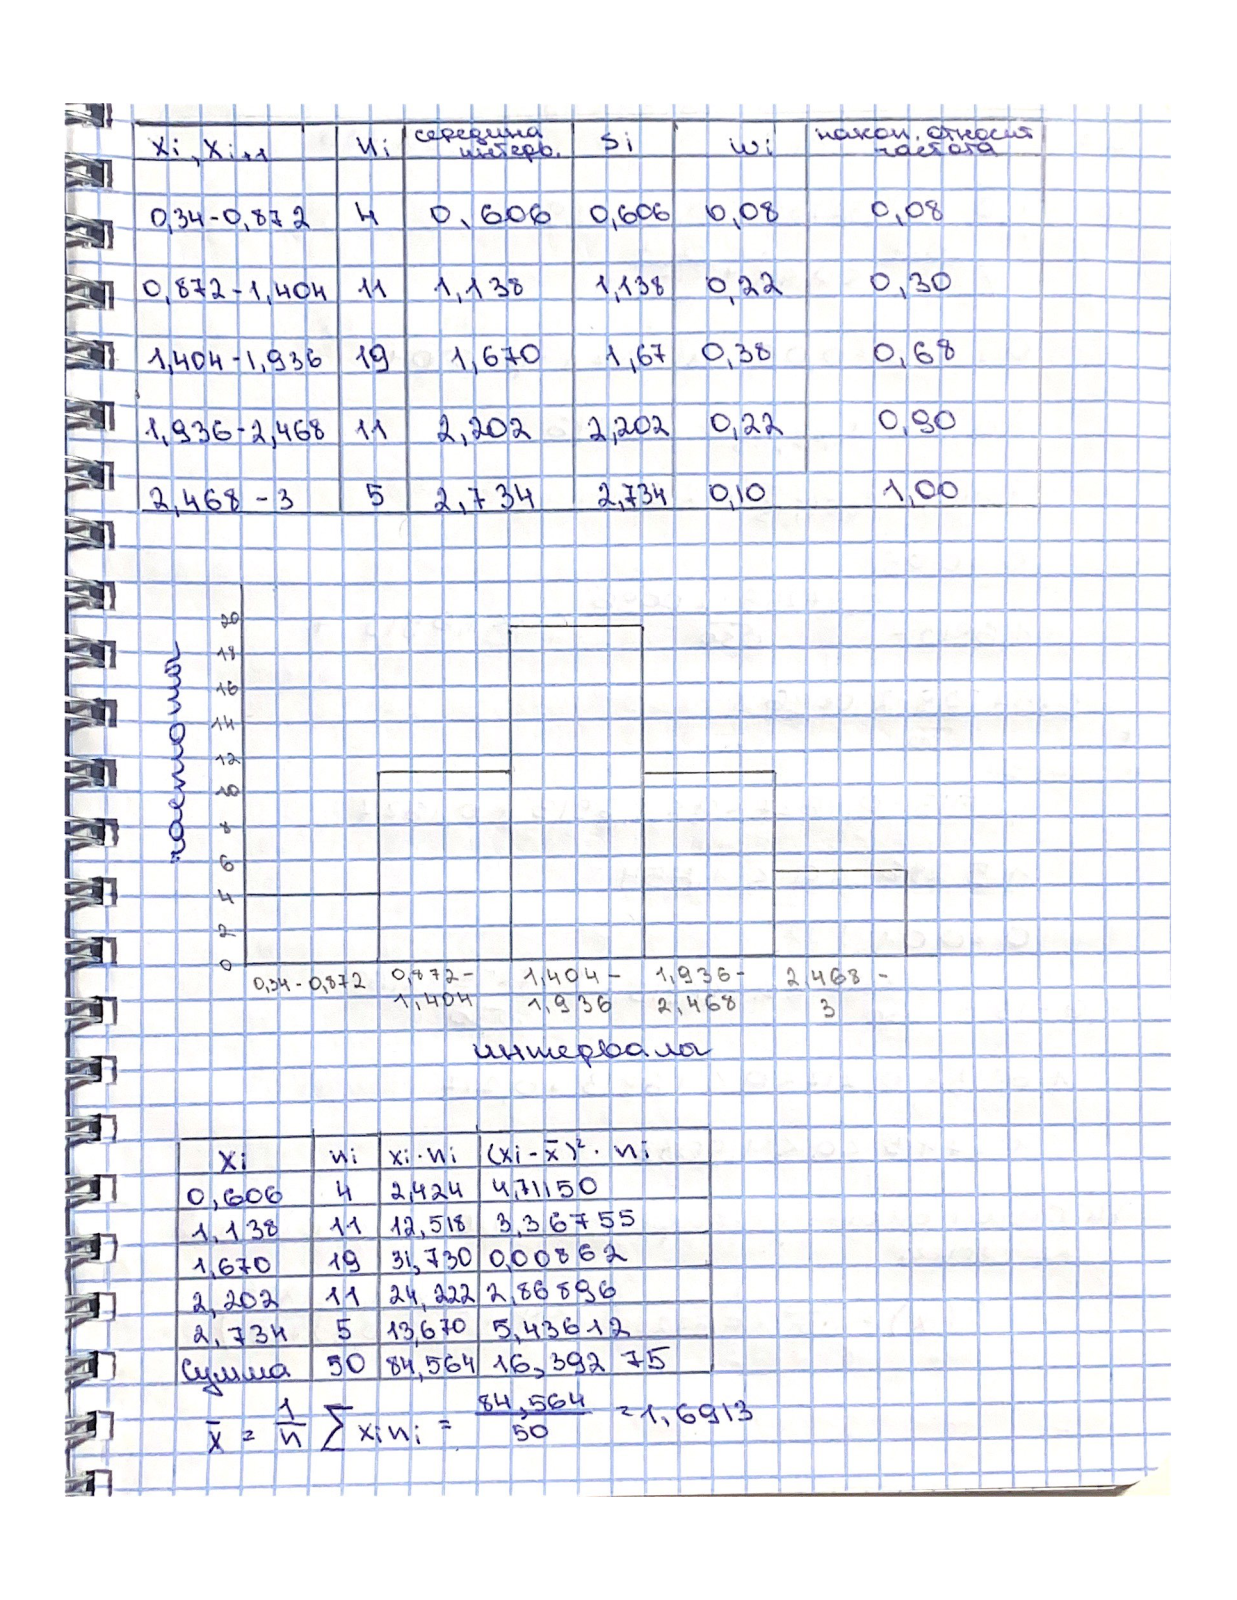 xi, xi+1 ni середина интерв. Si wi накоп. относит частота
0,34-0,872 4 0,606 0,606 0,08 0,08
0,872-1,404 11 1,138 1,138 0,22 0,30
1,404-1,936 19 1,670 1,67 0,38 0,68
1,936-2,468 11 2,202 2,202 0,22 0,90
2,468-3 5 2,734 2,734 0,10 1,00
частоты
20
18
16
14
12
10
8
6
4
2
0
0,34-0,872 0,872-1,404 1,404-1,936 1,936-2,468 2,468-3
интервалы
xi ni xi·ni (xi-x̄)²·ni
0,606 4 2,424 4,71150
1,138 11 12,518 3,36755
1,670 19 31,730 0,00862
2,202 11 24,222 2,86896
2,734 5 13,670 5,43612
Сумма 50 84,564 16,39275
x̄ = 1/n ∑ xi ni = 84,564/50 = 1,6913